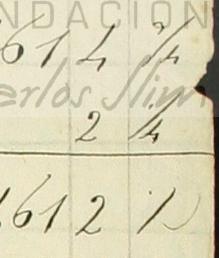 NDACIÓN
614 3/4
Carlos Slim
2 1/4
612 1/2